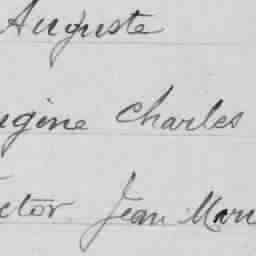 Auguste
ugène Charles
ctor Jean Mari